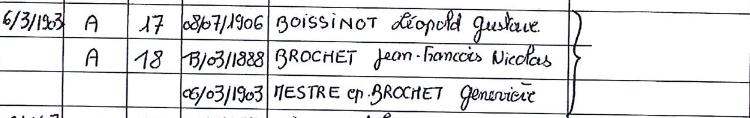 6/3/1903 A 17 08/07/1906 BOISSINOT Léopold Gustave
A 18 13/03/1888 BROCHET Jean-Francois Nicolas
06/03/1903 MESTRE ep. BROCHET Geneviève